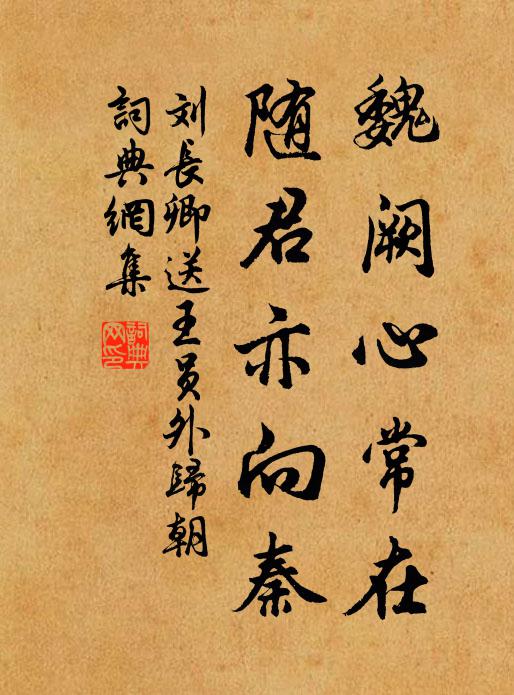 魏阙心常在
随君亦向秦
刘長卿送王员外歸朝
詞典網集
詞典网印